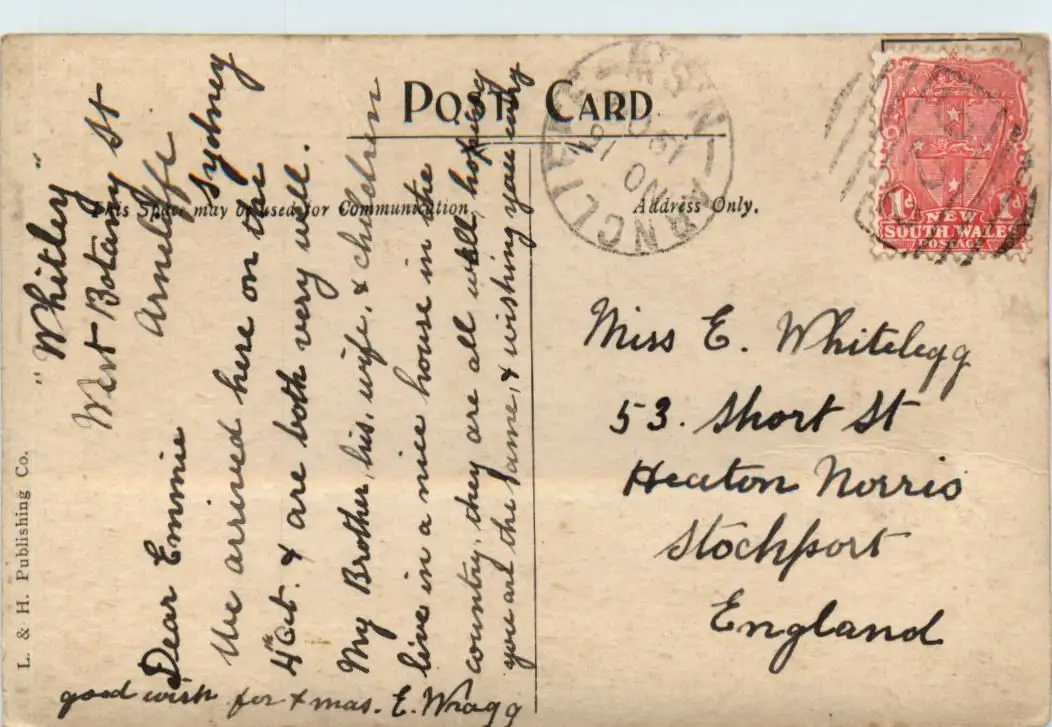 POST CARD
This Space may be used for Communication
Address Only.
L. & H. Publishing Co.
ARNCLIFFE N.S.W
1d NEW SOUTH WALES 1d
POSTAGE
"Whitley"
West Botany St
Arncliffe
Sydney
Dear Emmie
We arrived here on the
4th Oct. & are both very well.
My Brother, his wife, & children
live in a nice house in the
country, they are all well, hoping
you are the same, & wishing you every
good wish for Xmas. E. Wragg
Miss E. Whitelegg
53. Short St
Heaton Norris
Stockport
England